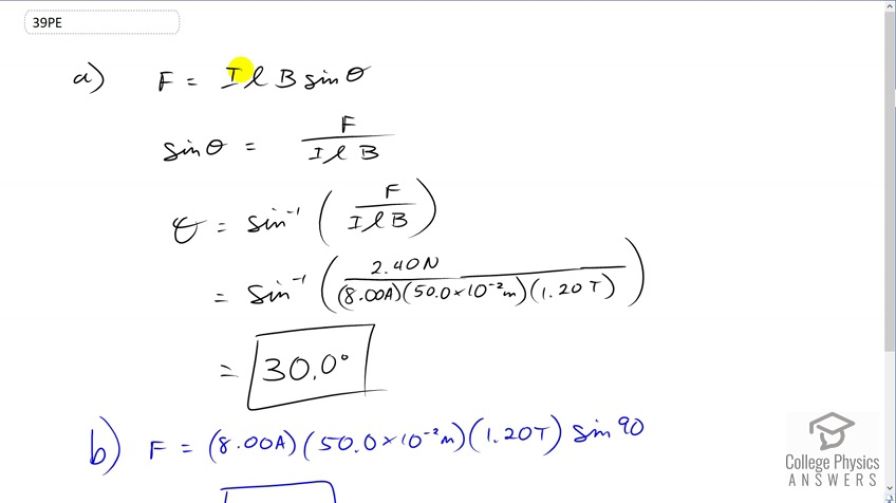 39PE
a) F = I ℓ B sin θ
sin θ = F / I ℓ B
θ = sin⁻¹ ( F / I ℓ B )
= sin⁻¹ ( 2.40N / (8.00A)(50.0×10⁻²m)(1.20T) )
= 30.0°
b) F = (8.00A)(50.0×10⁻²m)(1.20T) sin 90
College Physics
ANSWERS